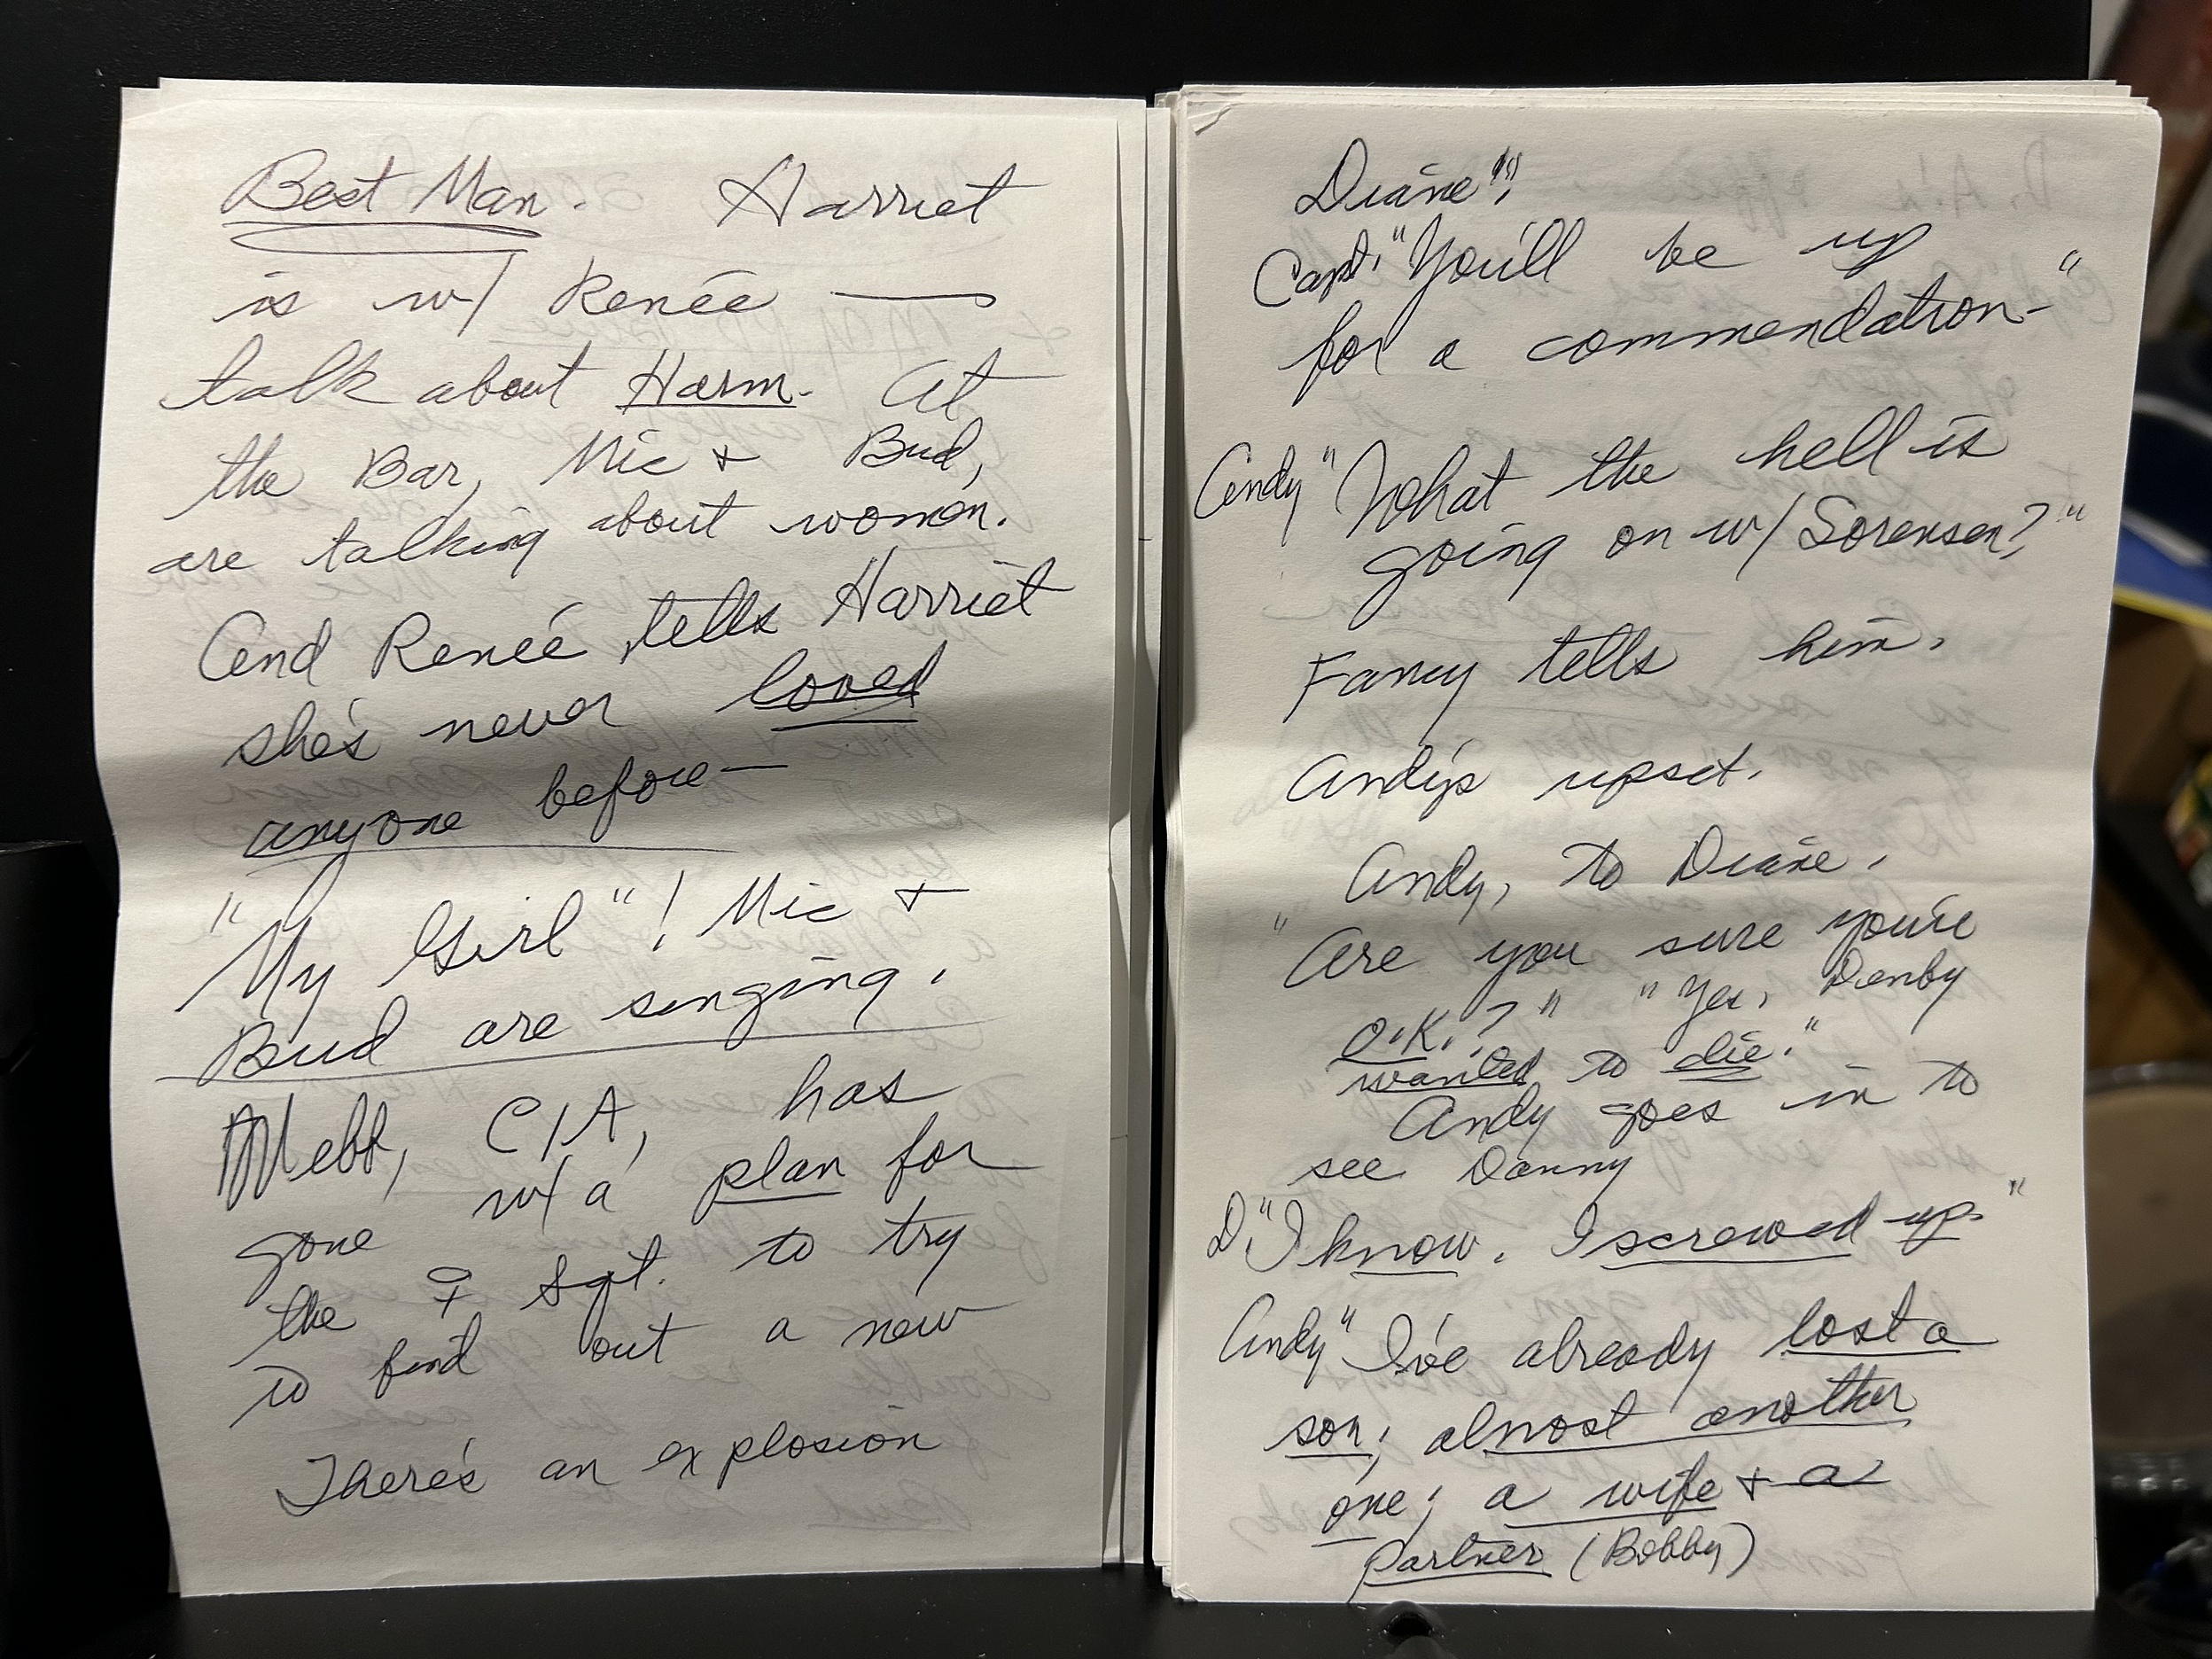 Best Man. Harriet
is w/ Renée —
talk about Harm. At
the Bar, Mic + Bud,
are talking about women.
And Renée tells Harriet
she's never loved
anyone before—
"My Girl"! Mic +
Bud are singing.
Webb, CIA, has
gone w/ a plan for
the ♀ Sgt. to try
to find out a new
There's an explosion
Diane"!
Capt. "You'll be up
for a commendation-"
Andy "What the hell is
going on w/ Sorensen?"
Fancy tells him.
Andy's upset.
Andy, to Diane.
"Are you sure you're
O.K.?" "Yes, Denby
wanted to die."
Andy goes in to
see Danny
D. "I know. I screwed up."
Andy "I've already lost a
son; almost another
one; a wife + a
partner (Bobby)